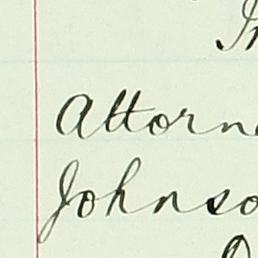 In
Attorn
Johnso